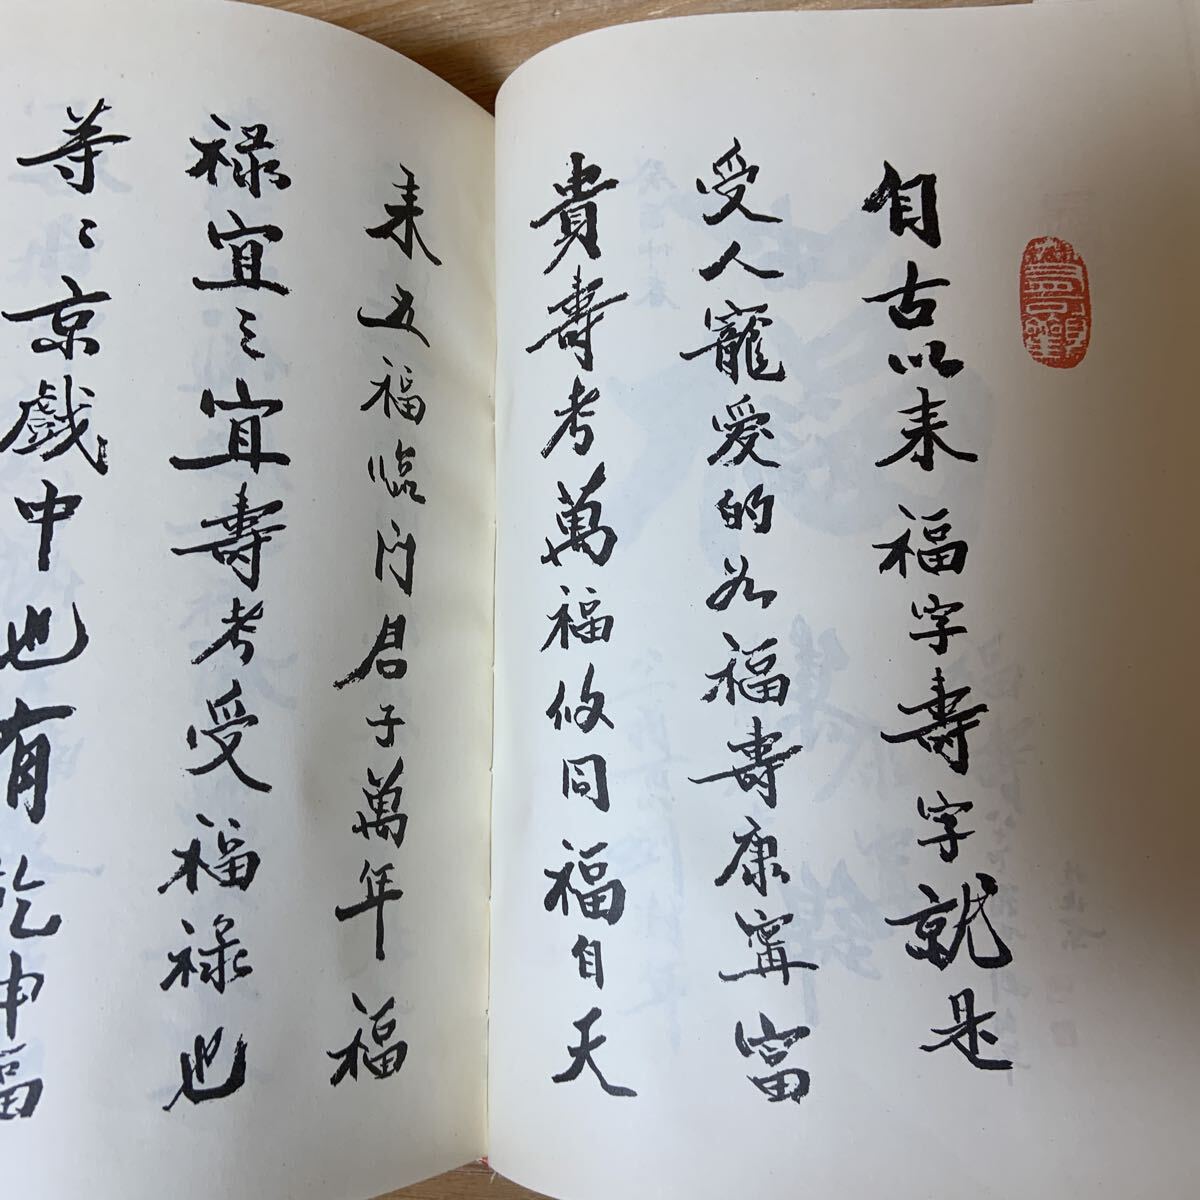 自古以来福字壽字就是
受人寵愛的如福壽康寧富
貴壽考萬福攸同福自天
来五福臨门君子萬年福
禄宜〻宜壽考受福禄也
等〻京戲中也有乾坤福